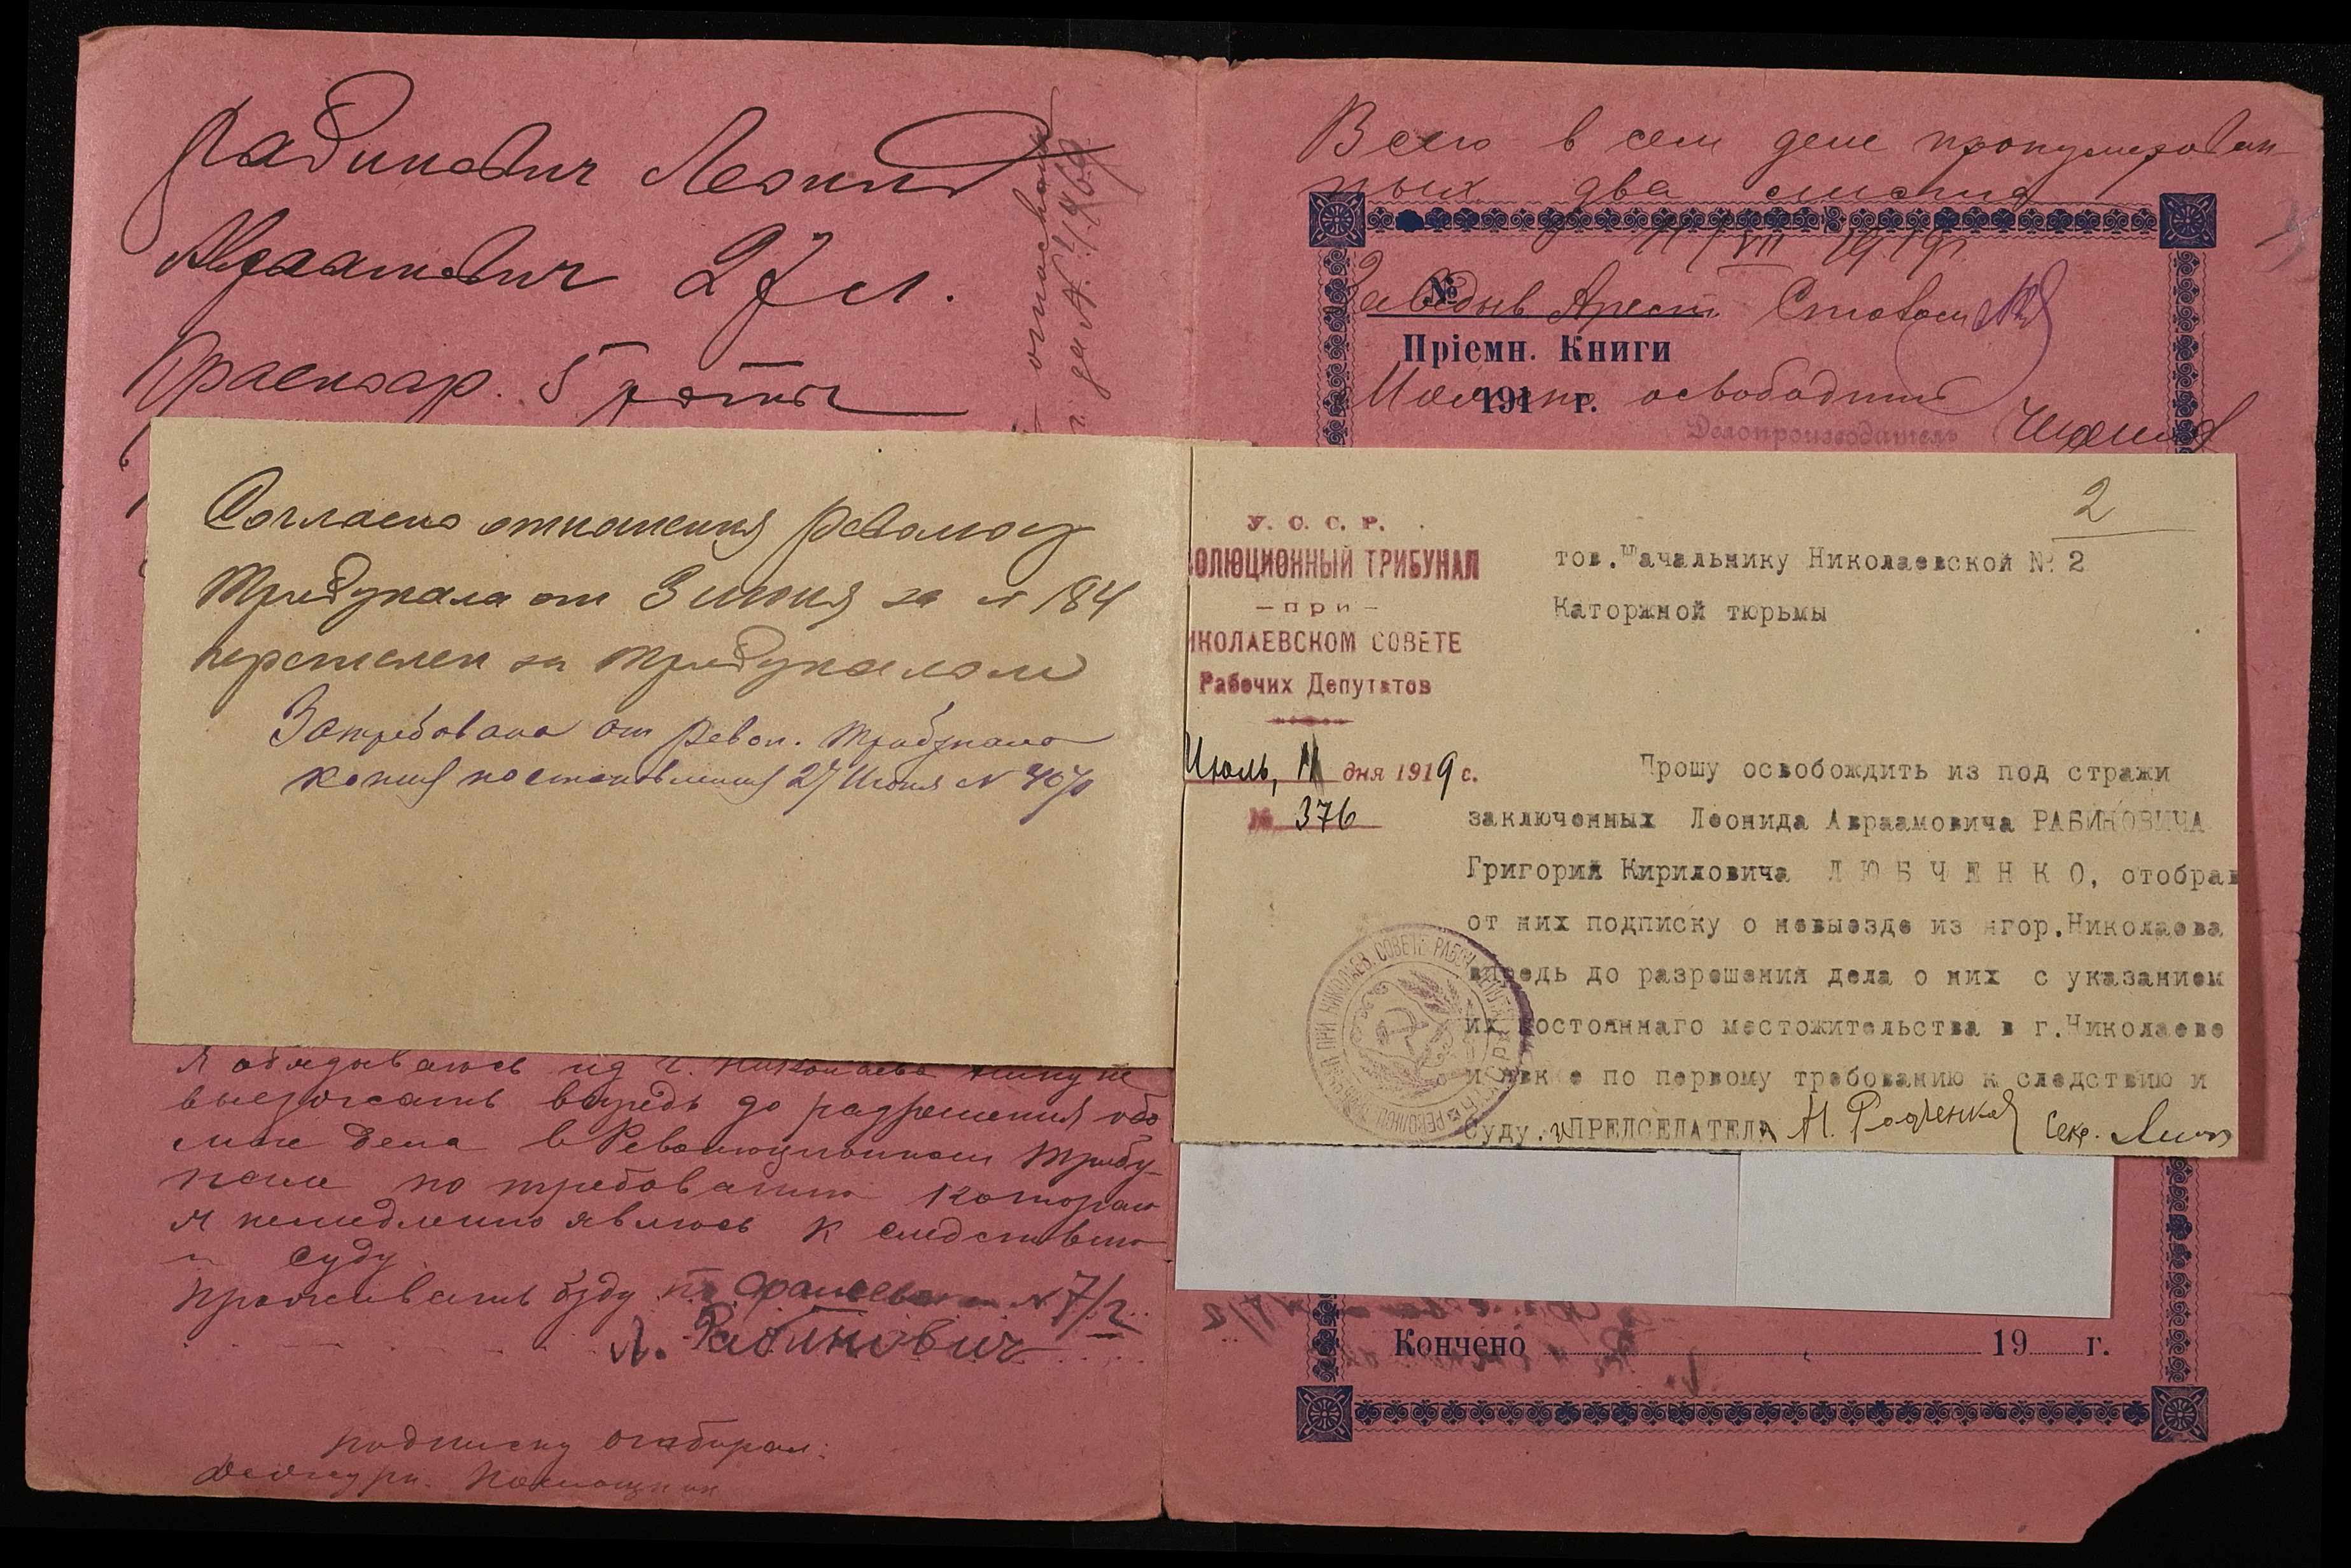 Рабинович Леонид
Авраамович 27 л.
Красноар. 5 роты
Согласно отношения револю
трибунала от 3 июня за № 184
перечислен за трибуналом
Затребована от Револ. трибунала
копия постановления 27 Июня №
Я обязываюсь из г. Николаева никуда не
выезжать впредь до разрешения обо
мне дела в Революционном трибу-
нале по требованию которого
я немедленно явлюсь к следствию
и суду
проживать буду по № 7/2
Л. Рабинович
подписку отобрал:
Дежурн. Помощник
Всего в сем деле пронумерован
ных два листа
11/VII 1919 г.
Заведыв Арест
№
Пріемн. Книги
191 г.
Можно освободить
Делопроизводитель
2
У. С. С. Р.
ОЛЮЦИОННЫЙ ТРИБУНАЛ
— при —
ИКОЛАЕВСКОМ СОВЕТЕ
Рабочих Депутатов
Июль, 11 дня 1919 г.
№ 376
тов. Начальнику Николаевской № 2
Каторжной тюрьмы
Прошу освобождить из под стражи
заключенных Леонида Авраамовича РАБИНОВИЧА
Григория Кириловича Л Ю Б Ч Е Н К О, отобрав
от них подписку о невыезде из гор. Николаева
впредь до разрешения дела о них с указанием
их постояннаго местожительства в г. Николаеве
и явке по первому требованию к следствию и
суду. ПРЕДСЕДАТЕЛЬ Секр.
Кончено 19 г.